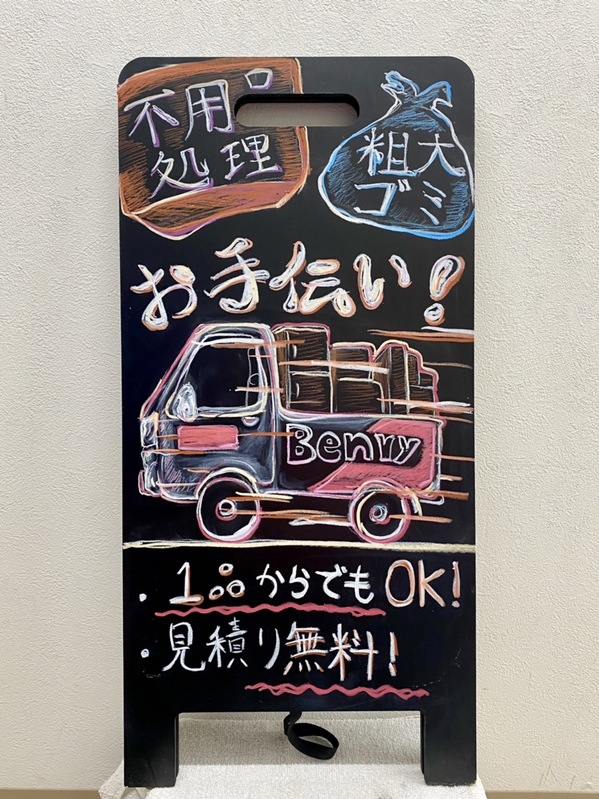 不用品
処理
粗大
ゴミ
お手伝い!
Benry
・1品からでもOK!
・見積り無料!